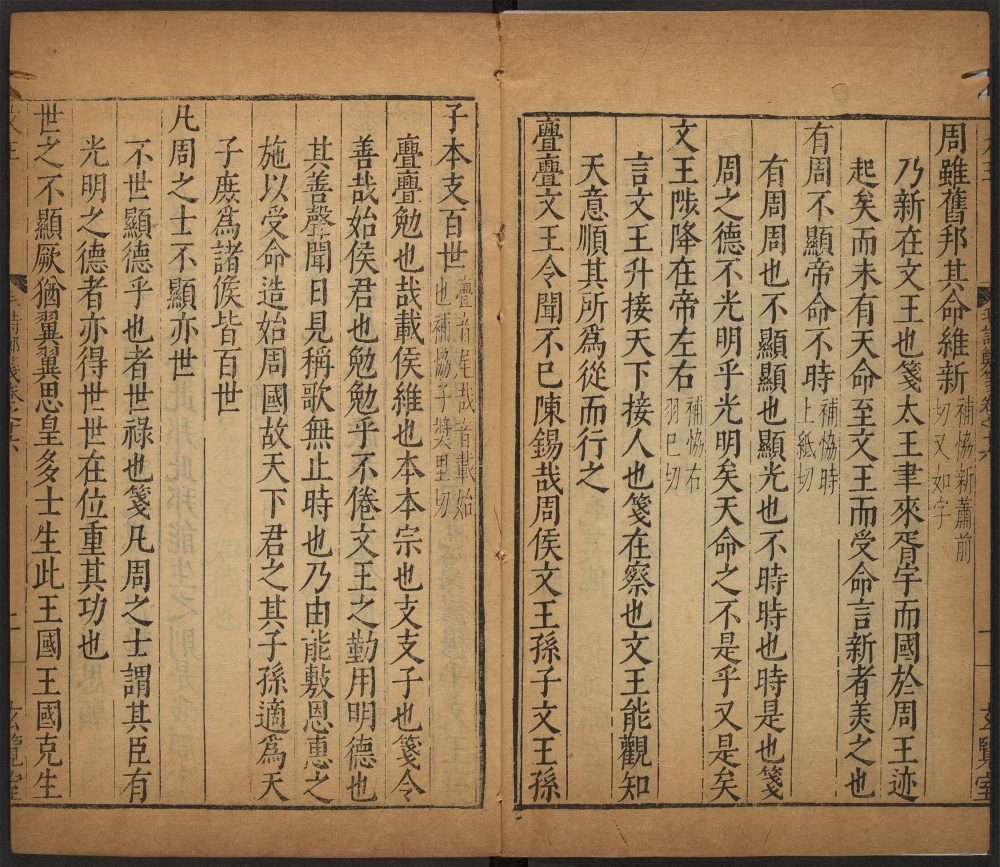 周雖舊邦其命維新補協新蕭前切又如字
乃新在文王也箋太王聿來胥宇而國於周王迹
起矣而未有天命至文王而受命言新者美之也
有周不顯帝命不時補協時上紙切
有周周也不顯顯也顯光也不時時也時是也箋
周之德不光明乎光明矣天命之不是乎又是矣
文王陟降在帝左右補協右羽巳切
言文王升接天下接人也箋在察也文王能觀知
天意順其所為從而行之
亹亹文王令聞不已陳錫哉周侯文王孫子文王孫
子本支百世哉音載始也補協子獎里切
亹亹勉也哉載侯維也本本宗也支支子也箋令
善哉始侯君也勉勉乎不倦文王之勤用明德也
其善聲聞日見稱歌無止時也乃由能敷恩惠之
施以受命造始周國故天下君之其子孫適為天
子庶為諸侯皆百世
凡周之士不顯亦世
不世顯德乎也者世祿也箋凡周之士謂其臣有
光明之德者亦得世世在位重其功也
世之不顯厥猶翼翼思皇多士生此王國王國克生
玄覽室